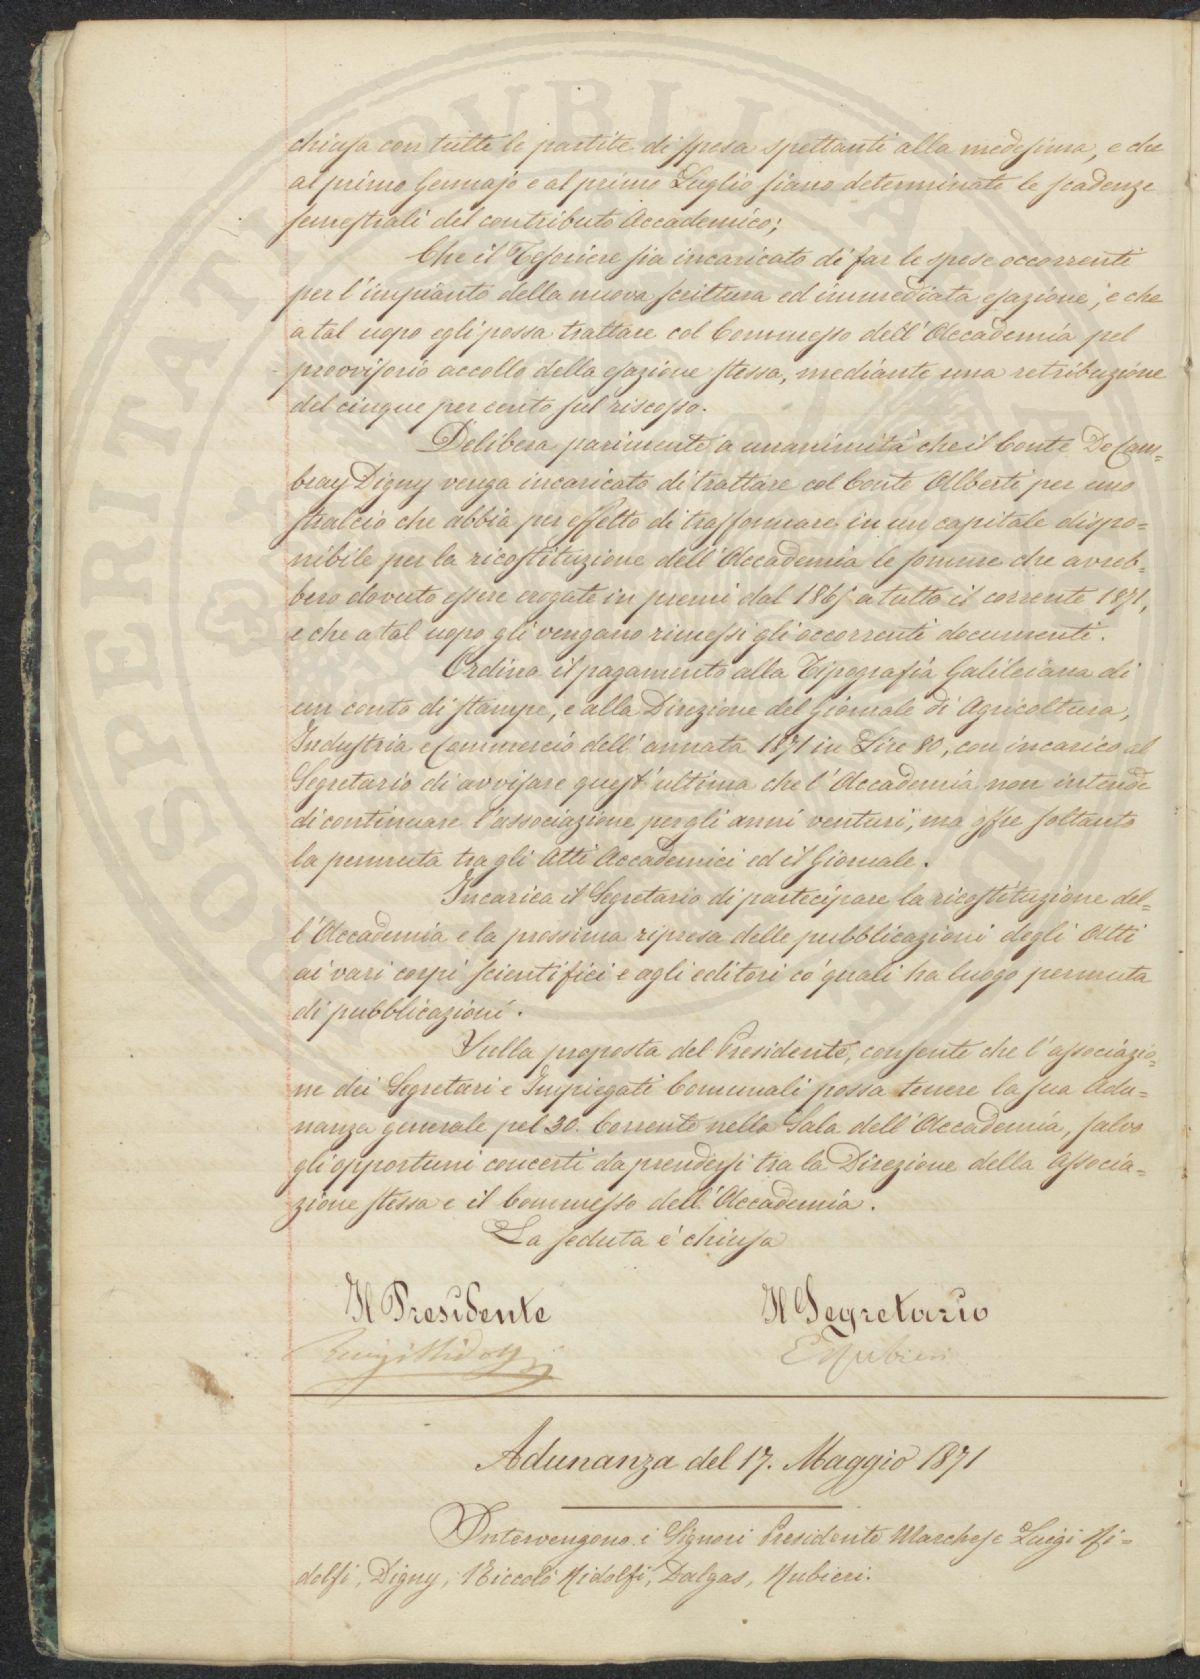 chiusa con tutte le partite di spesa spettanti alla medesima, e che
al primo Gennajo e al primo Luglio siano determinate le scadenze
semestrali del contributo Accademico;
Che il Tesoriere sia incaricato di far le spese occorrenti
per l'impianto della nuova scrittura ed immediata esazione, e che
a tal uopo egli possa trattare col Commesso dell'Accademia pel
provvisorio accollo della esazione stessa, mediante una retribuzione
del cinque per cento sul riscosso.
Delibera parimente a unanimità che il Conte De Cam=
bray Digny venga incaricato di trattare col Conte Alberti per uno
stralcio che abbia per effetto di trasformare in un capitale dispo=
nibile per la ricostituzione dell'Accademia le somme che avreb=
bero dovuto essere erogate in premi dal 1865 a tutto il corrente 1871,
e che a tal uopo gli vengano rimessi gli occorrenti documenti.
Ordina il pagamento alla Tipografia Galileiana di
un conto di stampe, e alla Direzione del Giornale di Agricoltura,
Industria e Commercio dell'annata 1871 in Lire 80, con incarico al
Segretario di avvisare quest'ultima che l'Accademia non intende
di continuare l'associazione per gli anni venturi, ma offre soltanto
la permuta tra gli Atti Accademici ed il Giornale.
Incarica il Segretario di partecipare la ricostituzione del=
l'Accademia e la prossima ripresa delle pubblicazioni degli Atti
ai vari corpi scientifici e agli editori co' quali ha luogo permuta
di pubblicazioni.
Sulla proposta del Presidente, consente che l'associazio=
ne dei Segretari e Impiegati Comunali possa tenere la sua Adu=
nanza generale pel 30. Corrente nella Sala dell'Accademia, salvo
gli opportuni concerti da prendersi tra la Direzione della Associa=
zione stessa e il Commesso dell'Accademia.
La seduta è chiusa
Il Presidente Il Segretario
Luigi Ridolfi E Rubieri
Adunanza del 17. Maggio 1871
Intervengono i Signori Presidente Marchese Luigi Ri=
dolfi, Digny, Niccolò Ridolfi, Dalgas, Rubieri.